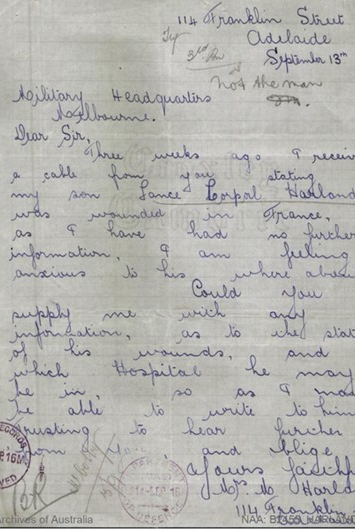 114 Franklin Street
Adelaide
September 13th
3rd
not the man
Military Headquarters
Melbourne.
Dear Sir,
Three weeks ago I receiv
a cable from you stating
my son Lance Corporal Harland
was wounded in France,
as I have had no further
information, I am feeling
anxious to his where abou
Could you
supply me with any
information, as to the stat
of his wounds, and
which Hospital he may
be in, so as I may
be able to write to him
Trusting to hear further
from you, and oblige
Yours faithf
Mrs M Harla
114 Franklin
Archives of Australia
NAA: